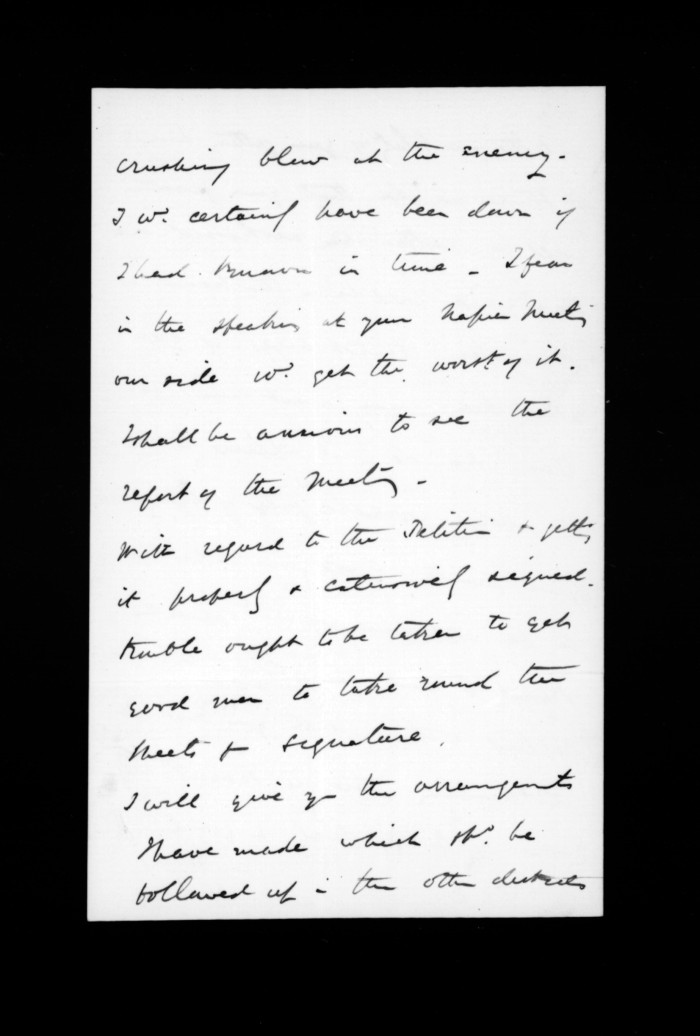 crushing blow at the enemy.
I wd. certainly have been down if
I had known in time - I fear
in the speaking at your Napier Meeting
our side wd. get the worst of it.
I shall be anxious to see the
report of the Meeting -
With regard to the Petition & getting
it properly & extensively signed.
trouble ought to be taken to get
good men to take round the
sheets for signature.
I will give you the arrangements
I have made which shd. be
followed up in the other districts